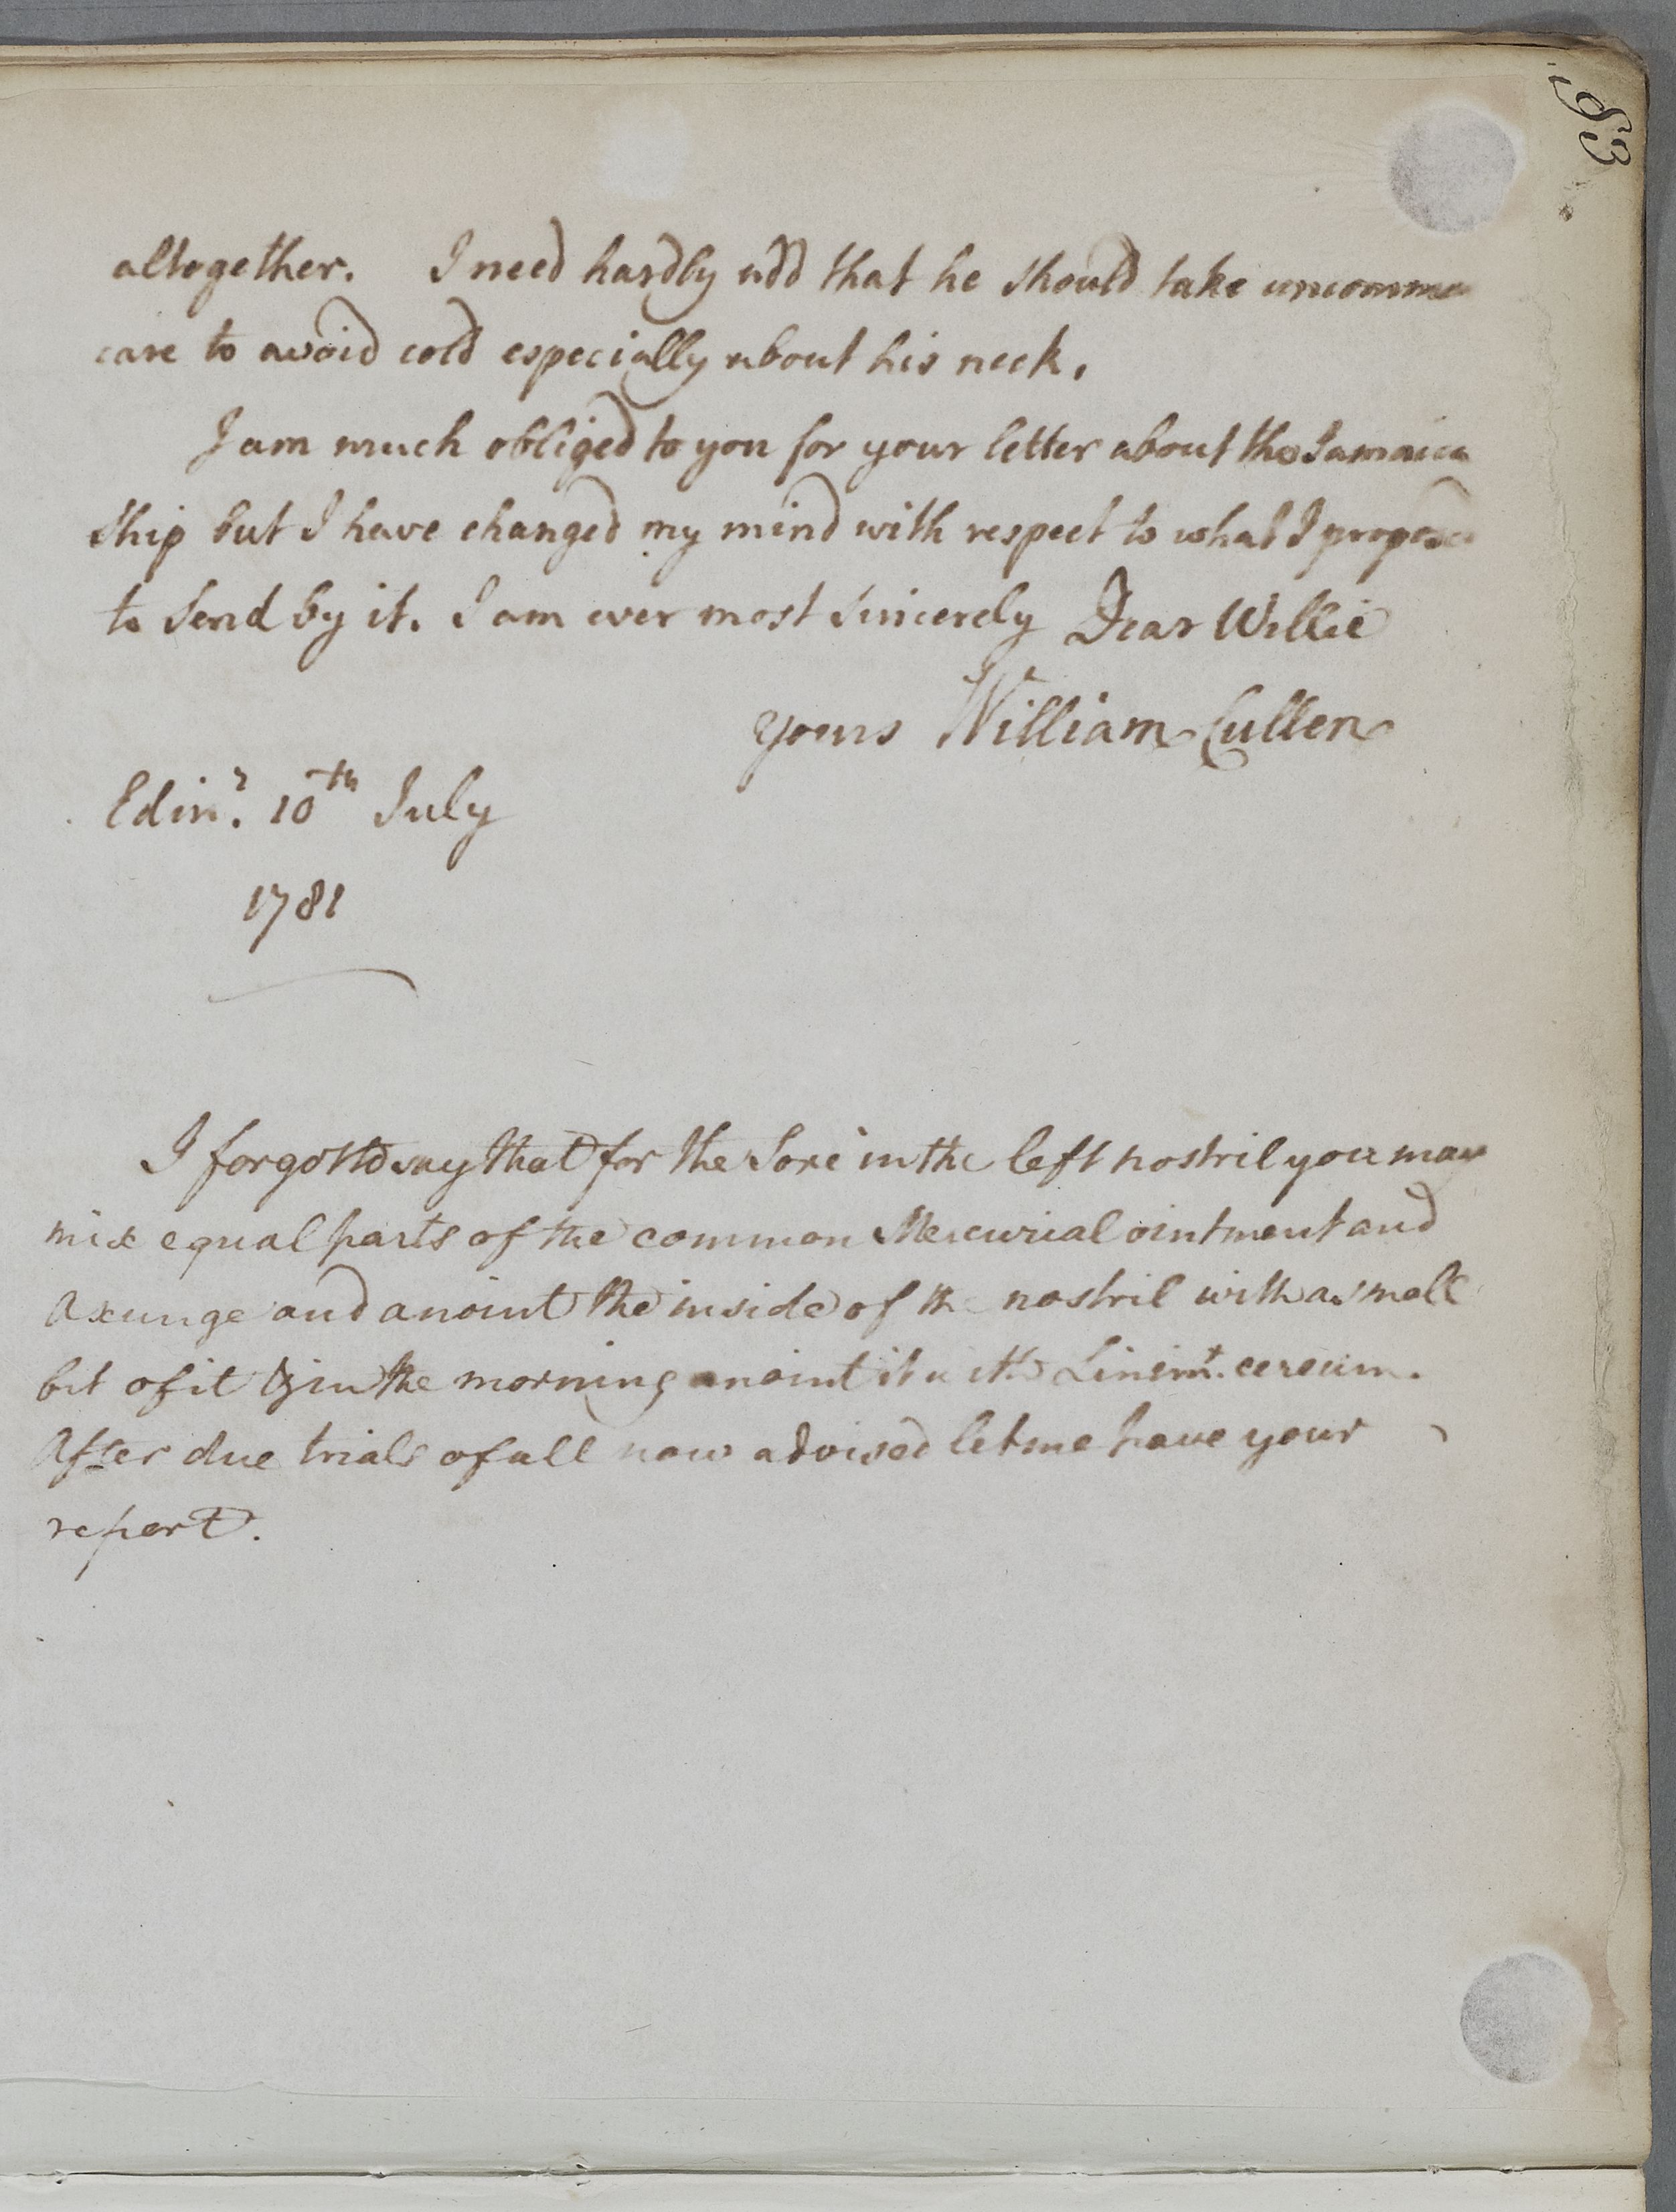 183
altogether. I need hardly add that he should take uncommon
care to avoid cold especially about his neck.
I am much obliged to you for your letter about the Jamaica
Ship but I have changed my mind with respect to what I proposed
to Send by it. I am ever most Sincerely Dear Willie
yours William Cullen
Edinr. 10th July
1781
I forgot to say that for the Sore in the left nostril you may
mix equal parts of the common Mercurial ointment and
Axunge and anoint the inside of the nostril with a small
bit of it & in the morning anoint it with Linimt. cereum.
After due trials of all now advised let me have your
report.